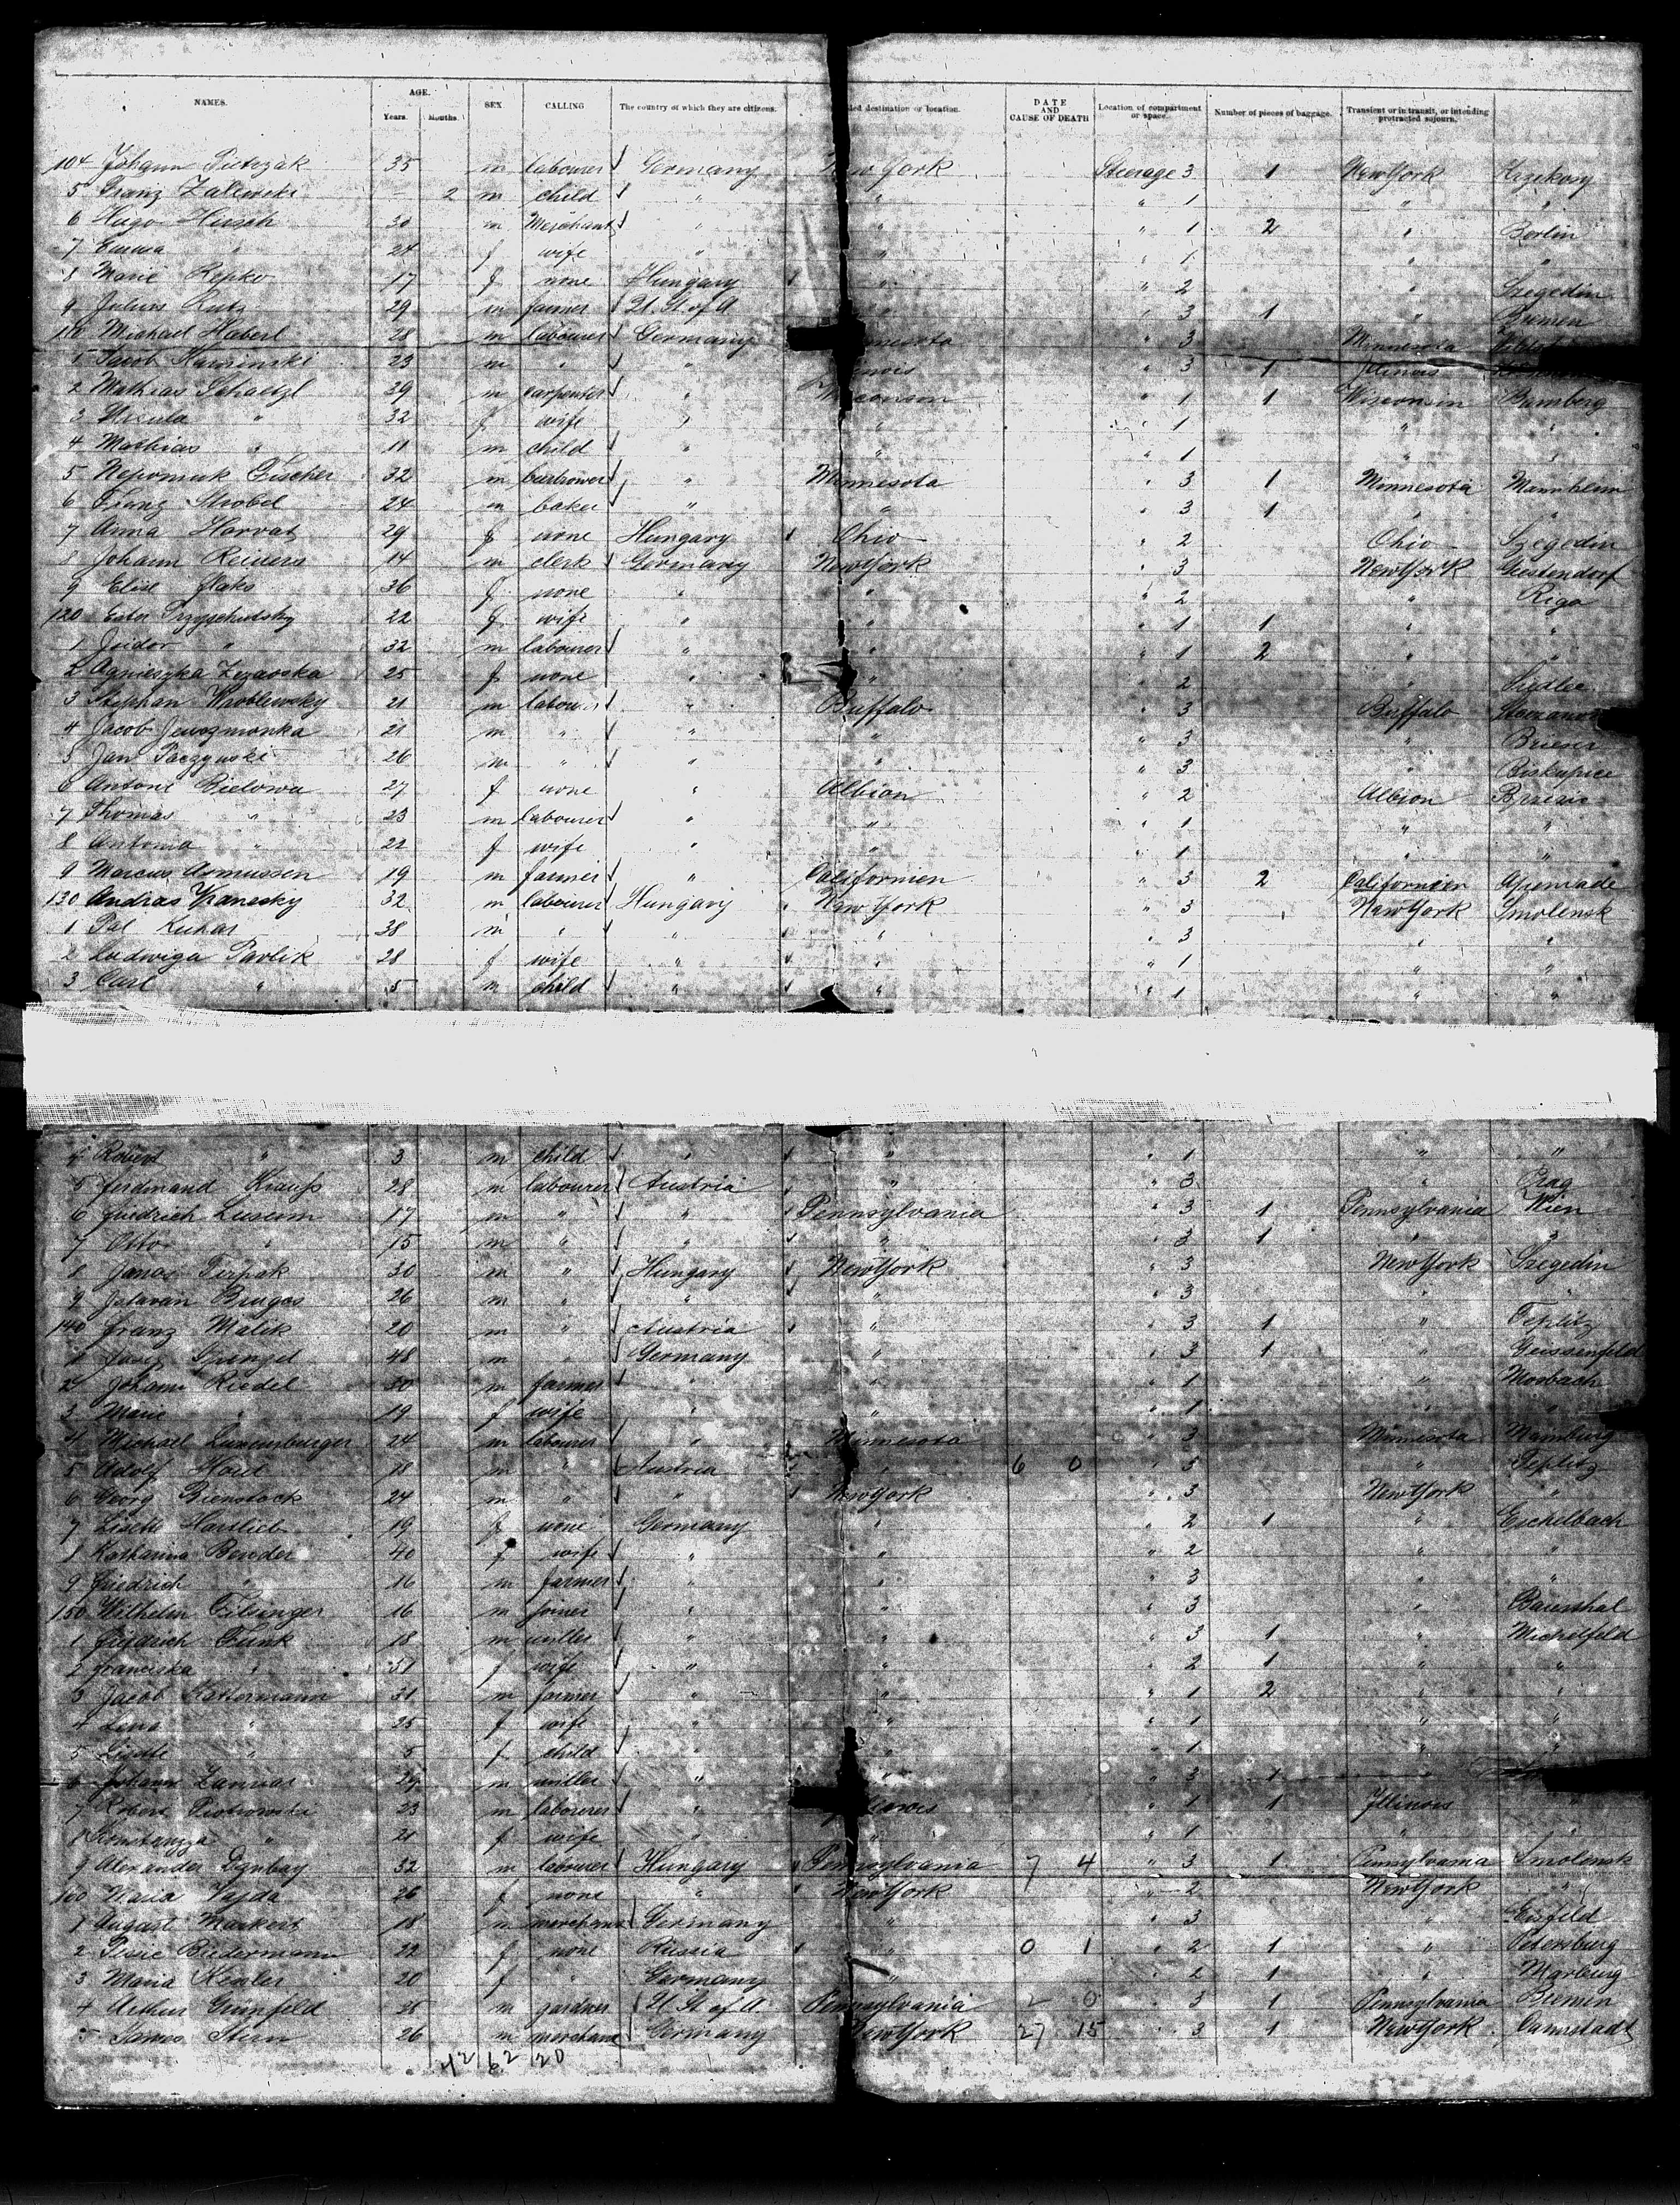 NAMES. AGE. SEX CALLING The country of which they are citizens. ded destination or location. DATE AND CAUSE OF DEATH Location of compartment or space. Number of pieces of baggage. Transient or in transit, or intending protracted sojourn.
Years. Months.
104 Johann Pietrzak 35 m labourer Germany New York Steerage 3 1 New York
5 Franz Zalewski - 2 m child " " " 1 " "
6 Hugo Hirsch 30 m Merchant " " " 1 2 " Berlin
7 Emma " 24 f wife " " " 1 " "
8 Marie Repko 17 f none Hungary " " 2 " Szegedin
9 Julius Rutz 29 m farmer U. St. of A. " " 3 1 " Bremen
110 Michael Haberl 28 m labourer Germany Minnesota " 3 Minnesota
1 Jacob Kaminski 23 m " " Illinois " 3 1 Illinois
2 Mathias Schatzl 39 m carpenter " Wisconson " 1 1 Wisconsin Bamberg
3 Ursula " 32 f wife " " " 1 " "
4 Mathias " 11 m child " " " 1 " "
5 Nepomuk Fischer 32 m " Minnesota " 3 1 Minnesota Mannheim
6 Franz Strobel 24 m baker " " " 3 1 " "
7 Anna Horvat 29 f none Hungary Ohio " 2 Ohio Szegedin
8 Johann Reiners 14 m clerk Germany New York " 3 New York Geestendorf
9 Elise Flaks 36 f none " " " 2 " Riga
120 Ester Przyschutsky 22 f wife " " " 1 1 " "
1 Isidor " 32 m labourer " " " 1 2 " "
2 Agnieszka 25 f none " " " 2 " Siedlec
3 Stephan Wroblewsky 21 m labourer " Buffalo " 3 Buffalo
4 Jacob 21 m " " " " 3 "
5 Jan Paczynski 26 m " " " " 3 " Biskupice
6 Antoni Bielowa 27 f none " Albion " 2 Albion
7 Thomas " 23 m labourer " " " 1 " "
8 Antonia " 22 f wife " " " 1 " "
9 Marcus Asmussen 19 m farmer " Californien " 3 2 Californien Apenrade
130 Andras 32 m labourer Hungary New York " 3 New York Smolensk
1 Pal Kuhar 38 m " " " " 3 " "
2 Ludwiga Pavlik 28 f wife " " " 1 " "
3 Carl " 5 m child " " " 1 " "
4 Robert " 3 m child " " " 1 " "
5 Ferdinand Krauss 28 m labourer Austria " " 3 " Prag
6 Friedrich 17 m " " Pennsylvania " 3 1 Pennsylvania Wien
7 Otto " 15 m " " " " 3 1 " "
8 Janos Terpak 30 m " Hungary New York " 3 New York Szegedin
9 Istavan 26 m " " " " 3 " "
140 Franz Malik 20 m " Austria " " 3 1 " Teplitz
1 Josef 48 m " Germany " " 3 1 " Geissenfeld
2 Johann Riedel 30 m farmer " " " 1 " Mosbach
3 Marie " 19 f wife " " " 1 " "
4 Michael Luxemburger 24 m labourer " Minnesota " 3 Minnesota
5 Adolf 18 m " Austria " 6 0 " 3 " Teplitz
6 Georg Bienstock 24 m " " New York " 3 New York "
7 Lisette Hartlieb 19 f none Germany " " 2 1 " Eschelbach
8 Katharina Bender 40 f wife " " " 2 " "
9 Friedrich " 16 m farmer " " " 3 " "
150 Wilhelm Filsinger 16 m joiner " " " 3 "
1 Friedrich Funk 18 m miller " " " 3 1 " Michelfeld
2 Franciska " 51 f wife " " " 2 1 " "
3 Jacob Kattermann 31 m farmer " " " 1 2 " "
4 Lena " 25 f wife " " " 1 " "
5 Lisette " 5 f child " " " 1 " "
6 Johann 29 m miller " " " 3 1 "
7 Robert Piotrowski 23 m labourer " Illinois " 1 1 Illinois "
8 Konstanzya " 21 f wife " " " 1 " "
9 Alexander 32 m labourer Hungary Pennsylvania 7 4 " 3 1 Pennsylvania Smolensk
160 Maria Vajda 26 f none " New York " 2 New York "
1 August Markert 18 m merchant Germany " " 3 "
2 Biedermann 22 f none Russia " 0 1 " 2 1 " Petersburg
3 Maria Kessler 20 f " Germany " " 2 1 " Marburg
4 Arthur Grünfeld 25 m gardner U. St. of A. Pennsylvania 2 0 " 3 1 Pennsylvania Bremen
5 James Stern 26 m merchant Germany New York 27 15 " 3 1 New York Darmstadt
42 62 20